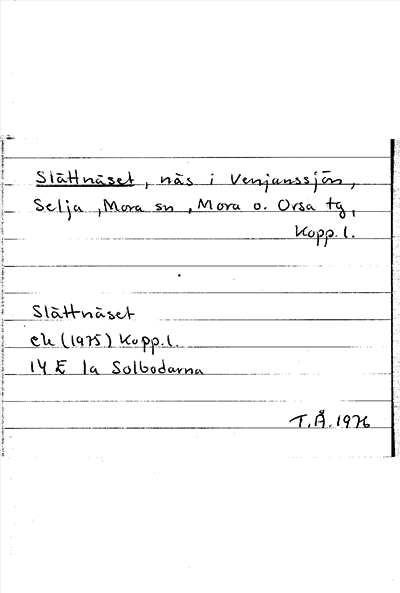 Slättnäset, näs i Venjanssjön,
Selja, Mora sn, Mora o. Orsa tg,
Kopp. l.
Slättnäset
ek (1975) Kopp. l.
14 E 1a Solbodarna
T.Å. 1976